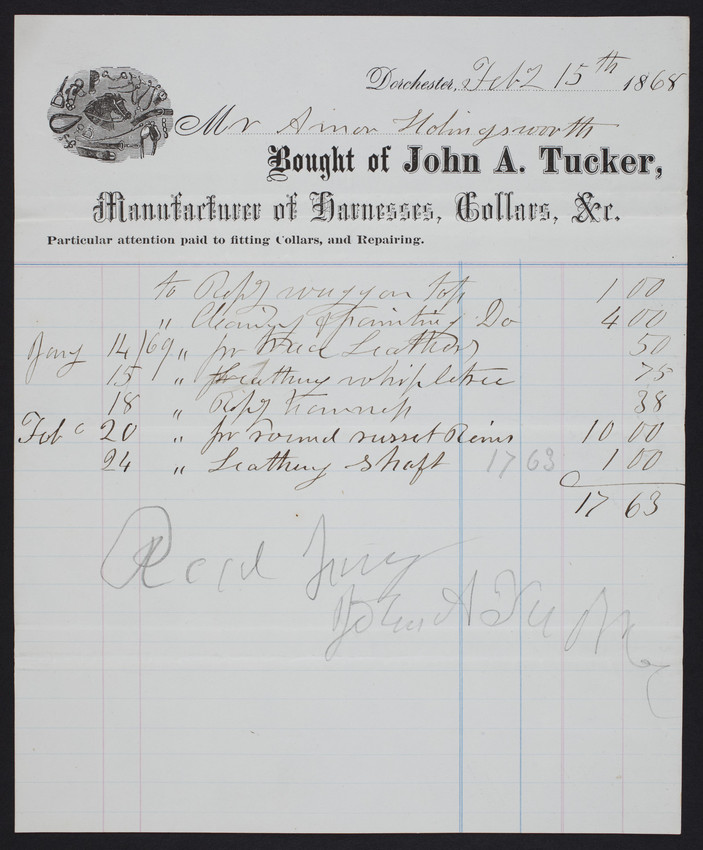 Dorchester, Feb 15th 1868
Mr Amor Holingsworth
Bought of John A. Tucker,
Manufacturer of Harnesses, Collars, &c.
Particular attention paid to fitting Collars, and Repairing.
to Repg waggon top 1 00
" Cleaning & painting Do 4 00
Jany 14/69 " for trace Leathers 50
15 " Leathing whipletree 75
18 " Repg 38
Feb 20 " for round russet Reins 10 00
24 " Leathing Shaft 17 63 1 00
17 63
Recd
John A Tucker